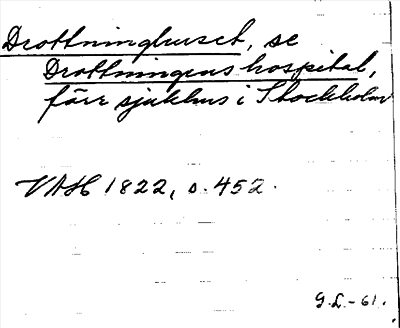 Drottninghuset, se
Drottningens hospital,
förr sjukhus i Stockholm
VAH 1822, s. 452.
G.L.-61.